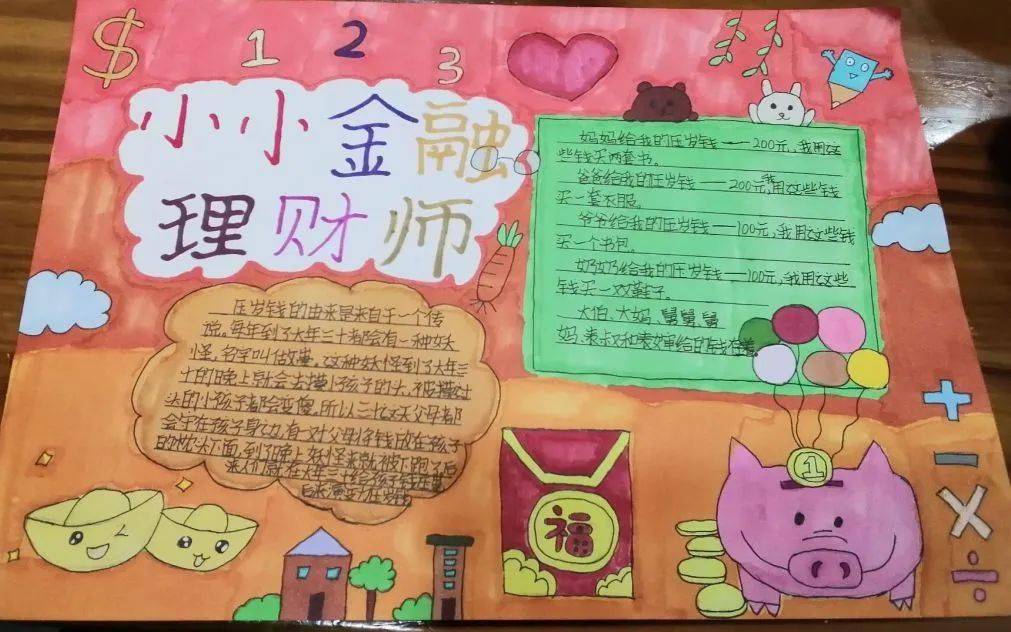 $
1 2 3
小小金融
理财师
妈妈给我的压岁钱——200元,我用这
些钱买两套书。
爸爸给我的压岁钱——200元,我用这些钱
买一套衣服。
爷爷给我的压岁钱——100元,我用这些钱
买一个书包。
奶奶给我的压岁钱——100元,我用这些
钱买一双鞋子。
大伯、大妈、舅舅、舅
妈、表叔和表婶给的钱
压岁钱的由来是来自于一个传
说,每年到了大年三十都会有一种妖
怪,名字叫做祟,这种妖怪到了大年三
十的晚上就会去摸小孩子的头,被摸过
头的小孩子都会变傻,所以三十这天父母都
会守在孩子身边,有一对父母将钱放在孩子
的枕头下面,到了晚上妖怪来就被下跑了后
来人们就在大年三十给孩子
福
1
+
-
×
÷